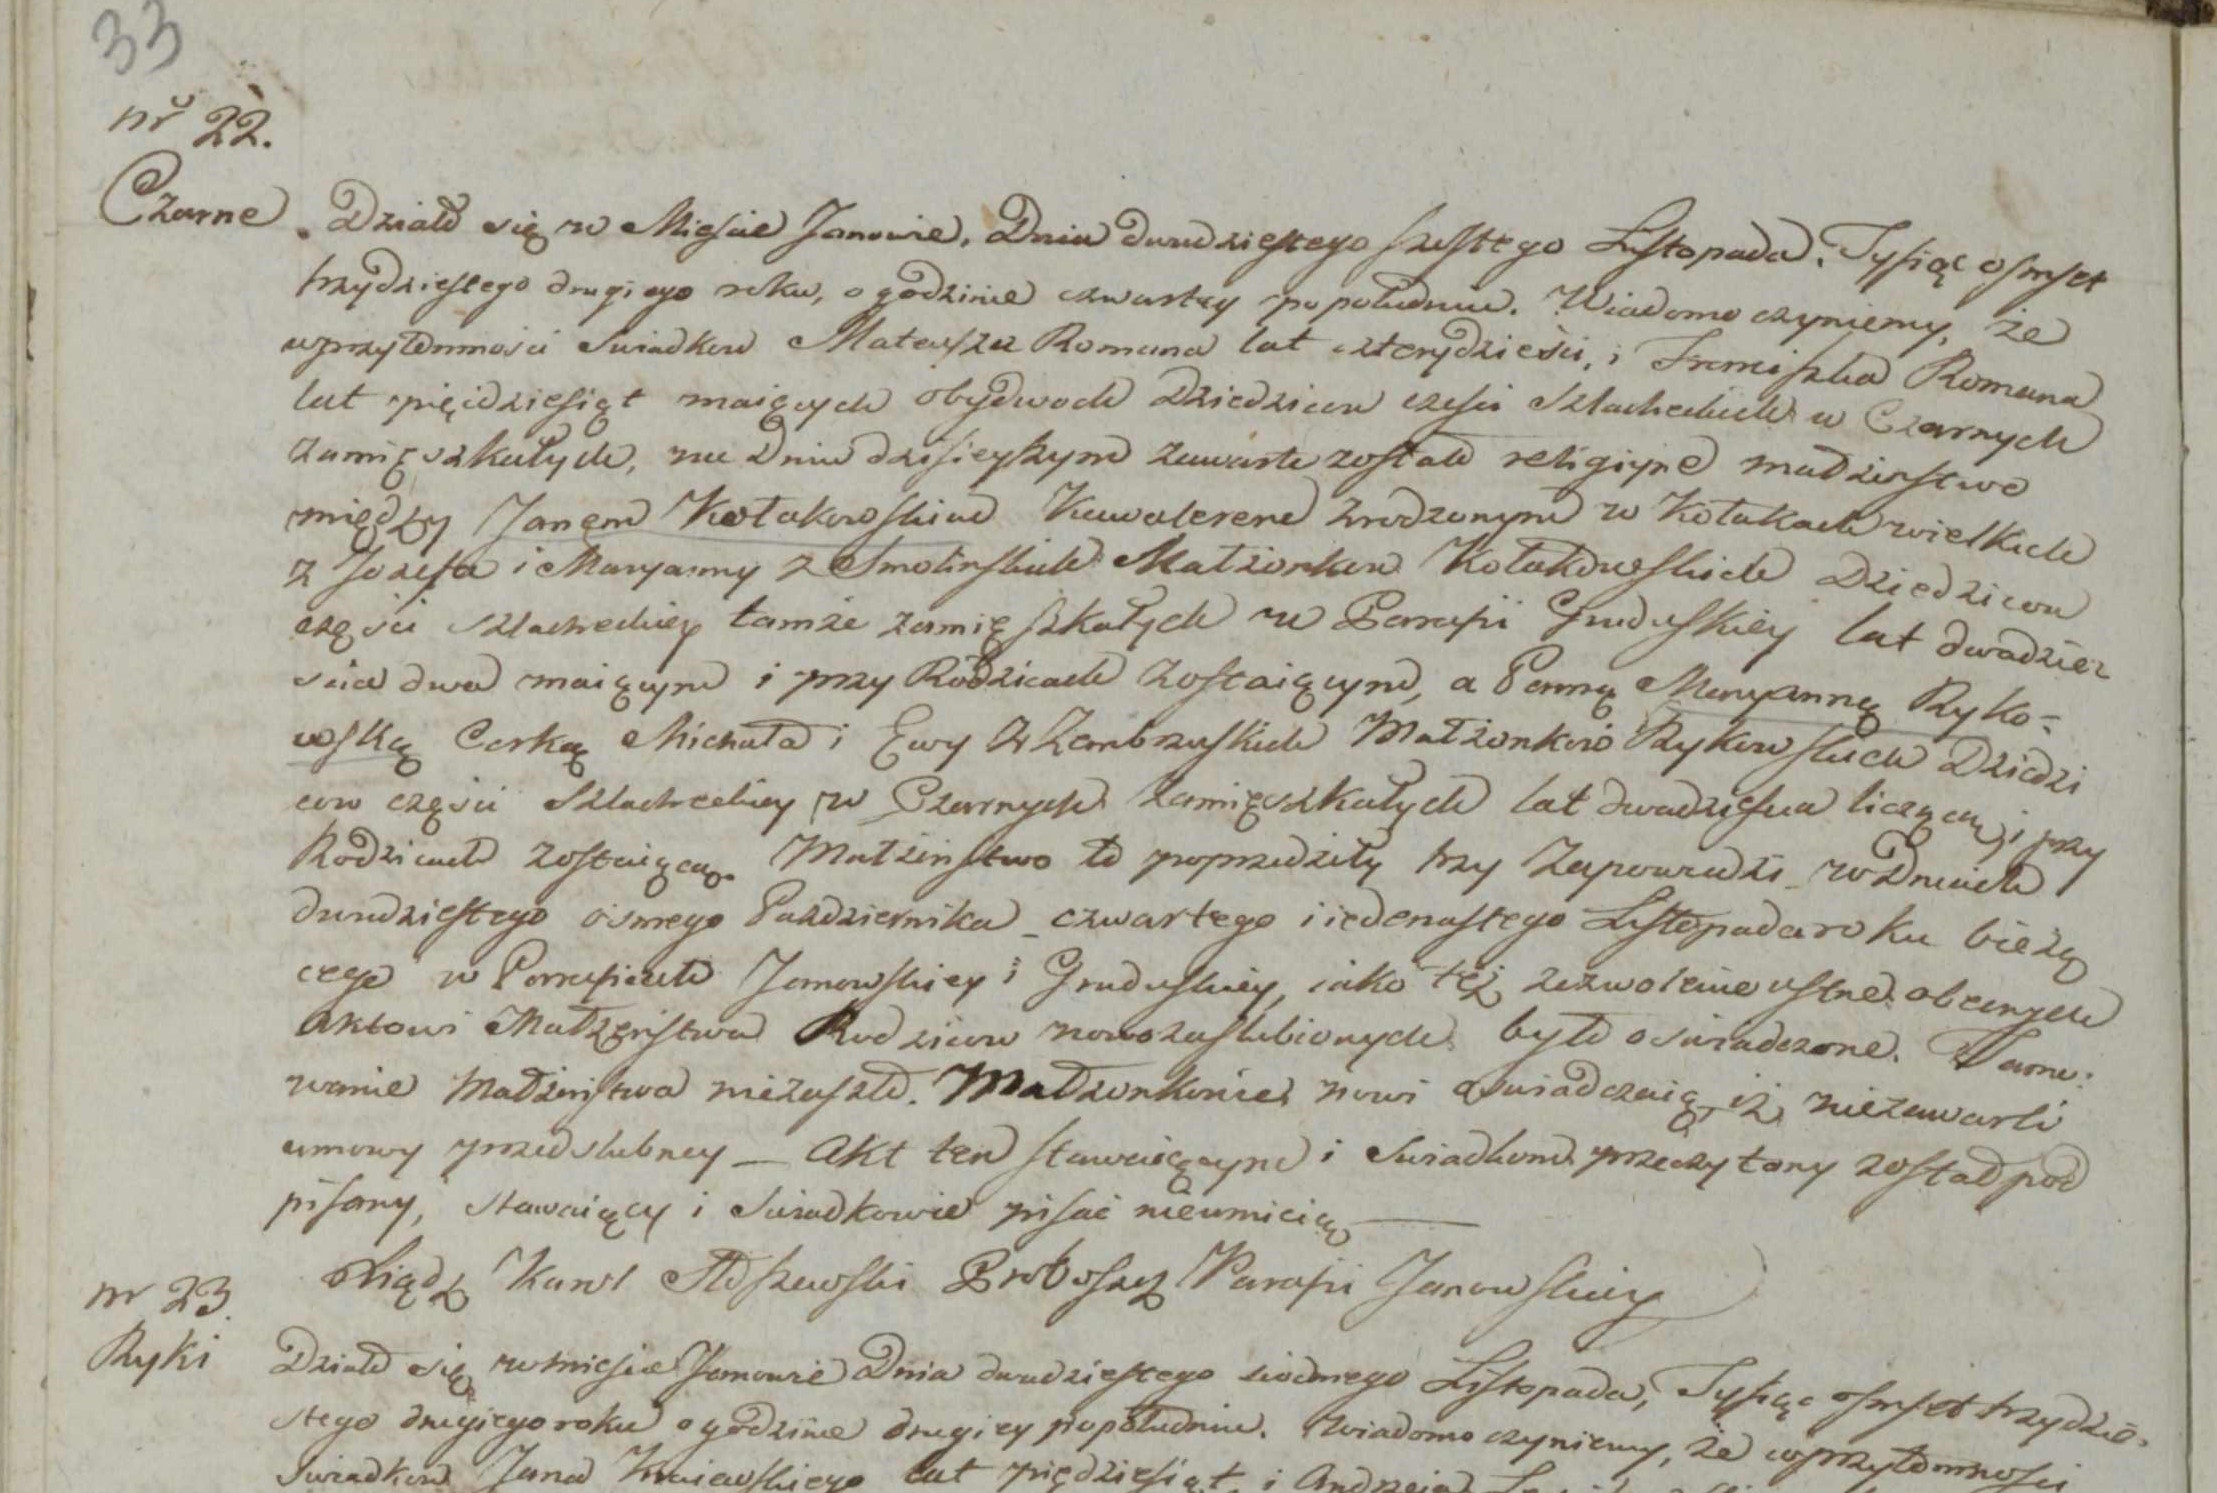 33
nr 22.
Czarne. Działo się w Mieście Janowie, Dnia dwudziestego szostego Listopada, Tysiąc osmset
trzydziestego drugiego roku, o godzinie czwartey popołudniu. Wiadomo czyniemy, że
wprzytomności Swiadkow Mateusza Romana lat czterydzieści, i Franciszka Romana
lat pięćdziesiąt maiących obydwoch Dziedzicow części Szlacheckich w Czarnych
zamięszkałych, na Dniu dzisieyszym zawarte zostało religiyne małżenstwo
między Janem Kołakowskim Kawalerem zrodzonym w Kołakach wielkich
z Jozefa i Maryanny z Smolinskich Małżonkow Kołakowskich Dziedzicow
częsci szlacheckiey tamże zamięszkałych w Parafii Gruduskiey lat dwadzies
cia dwa maiącym i przy Rodzicach zostaiącym, a Panną Maryanną Ryko=
wską Corką Michała i Ewy z Zembrzuskich Małżonkow Rykowskich Dziedzi
cow części Szlacheckiey w Czarnych zamięszkałych lat dwadziescia liczącą i przy
Rodzicach zostaiącą. Małżeństwo to poprzedziły trzy Zapowiedzi w Dniach
dwudziestego osmego Pazdziernika czwartego i iedenastego Listopada roku bieżą
cego w Parafiach Janowskiey i Gruduskiey, iako też zezwolenie ustne obecnych
Aktowi Małżeństwa Rodzicow nowozaslubionych było oswiadczone. Tamo:
wanie Małżeństwa niezaszło. Małżonkowie nowi oswiadczaią, iż niezawarli
umowy przedslubney — Akt ten stawaiącym i Swiadkom przeczytany został pod
pisany, Stawaiący i Swiadkowie pisać nieumieią —
Xiądz Karol Proboszcz Parafii Janowskiey
nr 23.
Ryki
Działo się w Mieście Janowie Dnia dwudziestego siodmego Listopada, Tysiąc osmset trzydzie-
stego drugiego roku o godzinie drugiey popołudniu. Wiadomo czyniemy, że wprzytomności
Swiadkow Jana lat pięćdziesiąt, i Andrzeia